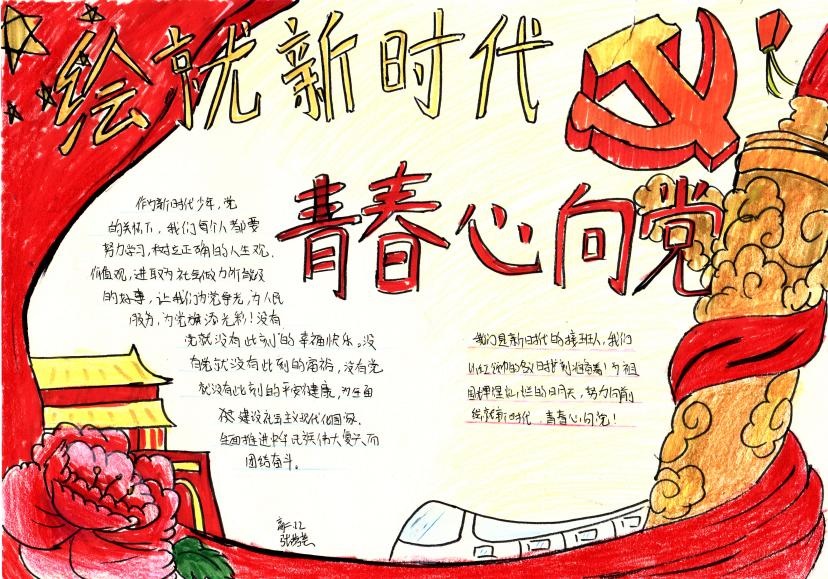 绘就新时代
青春心向党
作为新时代少年,党
的关怀下,我们每个人都要
努力学习,树立正确的人生观、
价值观,进取为社会做力所能及
的好事,让我们为党争光,为人民
服务,为党旗添光彩!没有
党就没有此刻的幸福快乐。没
有党就没有此刻的富裕,没有党
就没有此刻的平安健康,为全面
建设社会主义现代化国家、
全面推进中华民族伟大复兴而
团结奋斗。
高一.12
我们是新时代的接班人,我们
以红领巾的名义时刻准备着!为祖
国辉煌灿烂的明天,努力向前
绘就新时代,青春心向党!